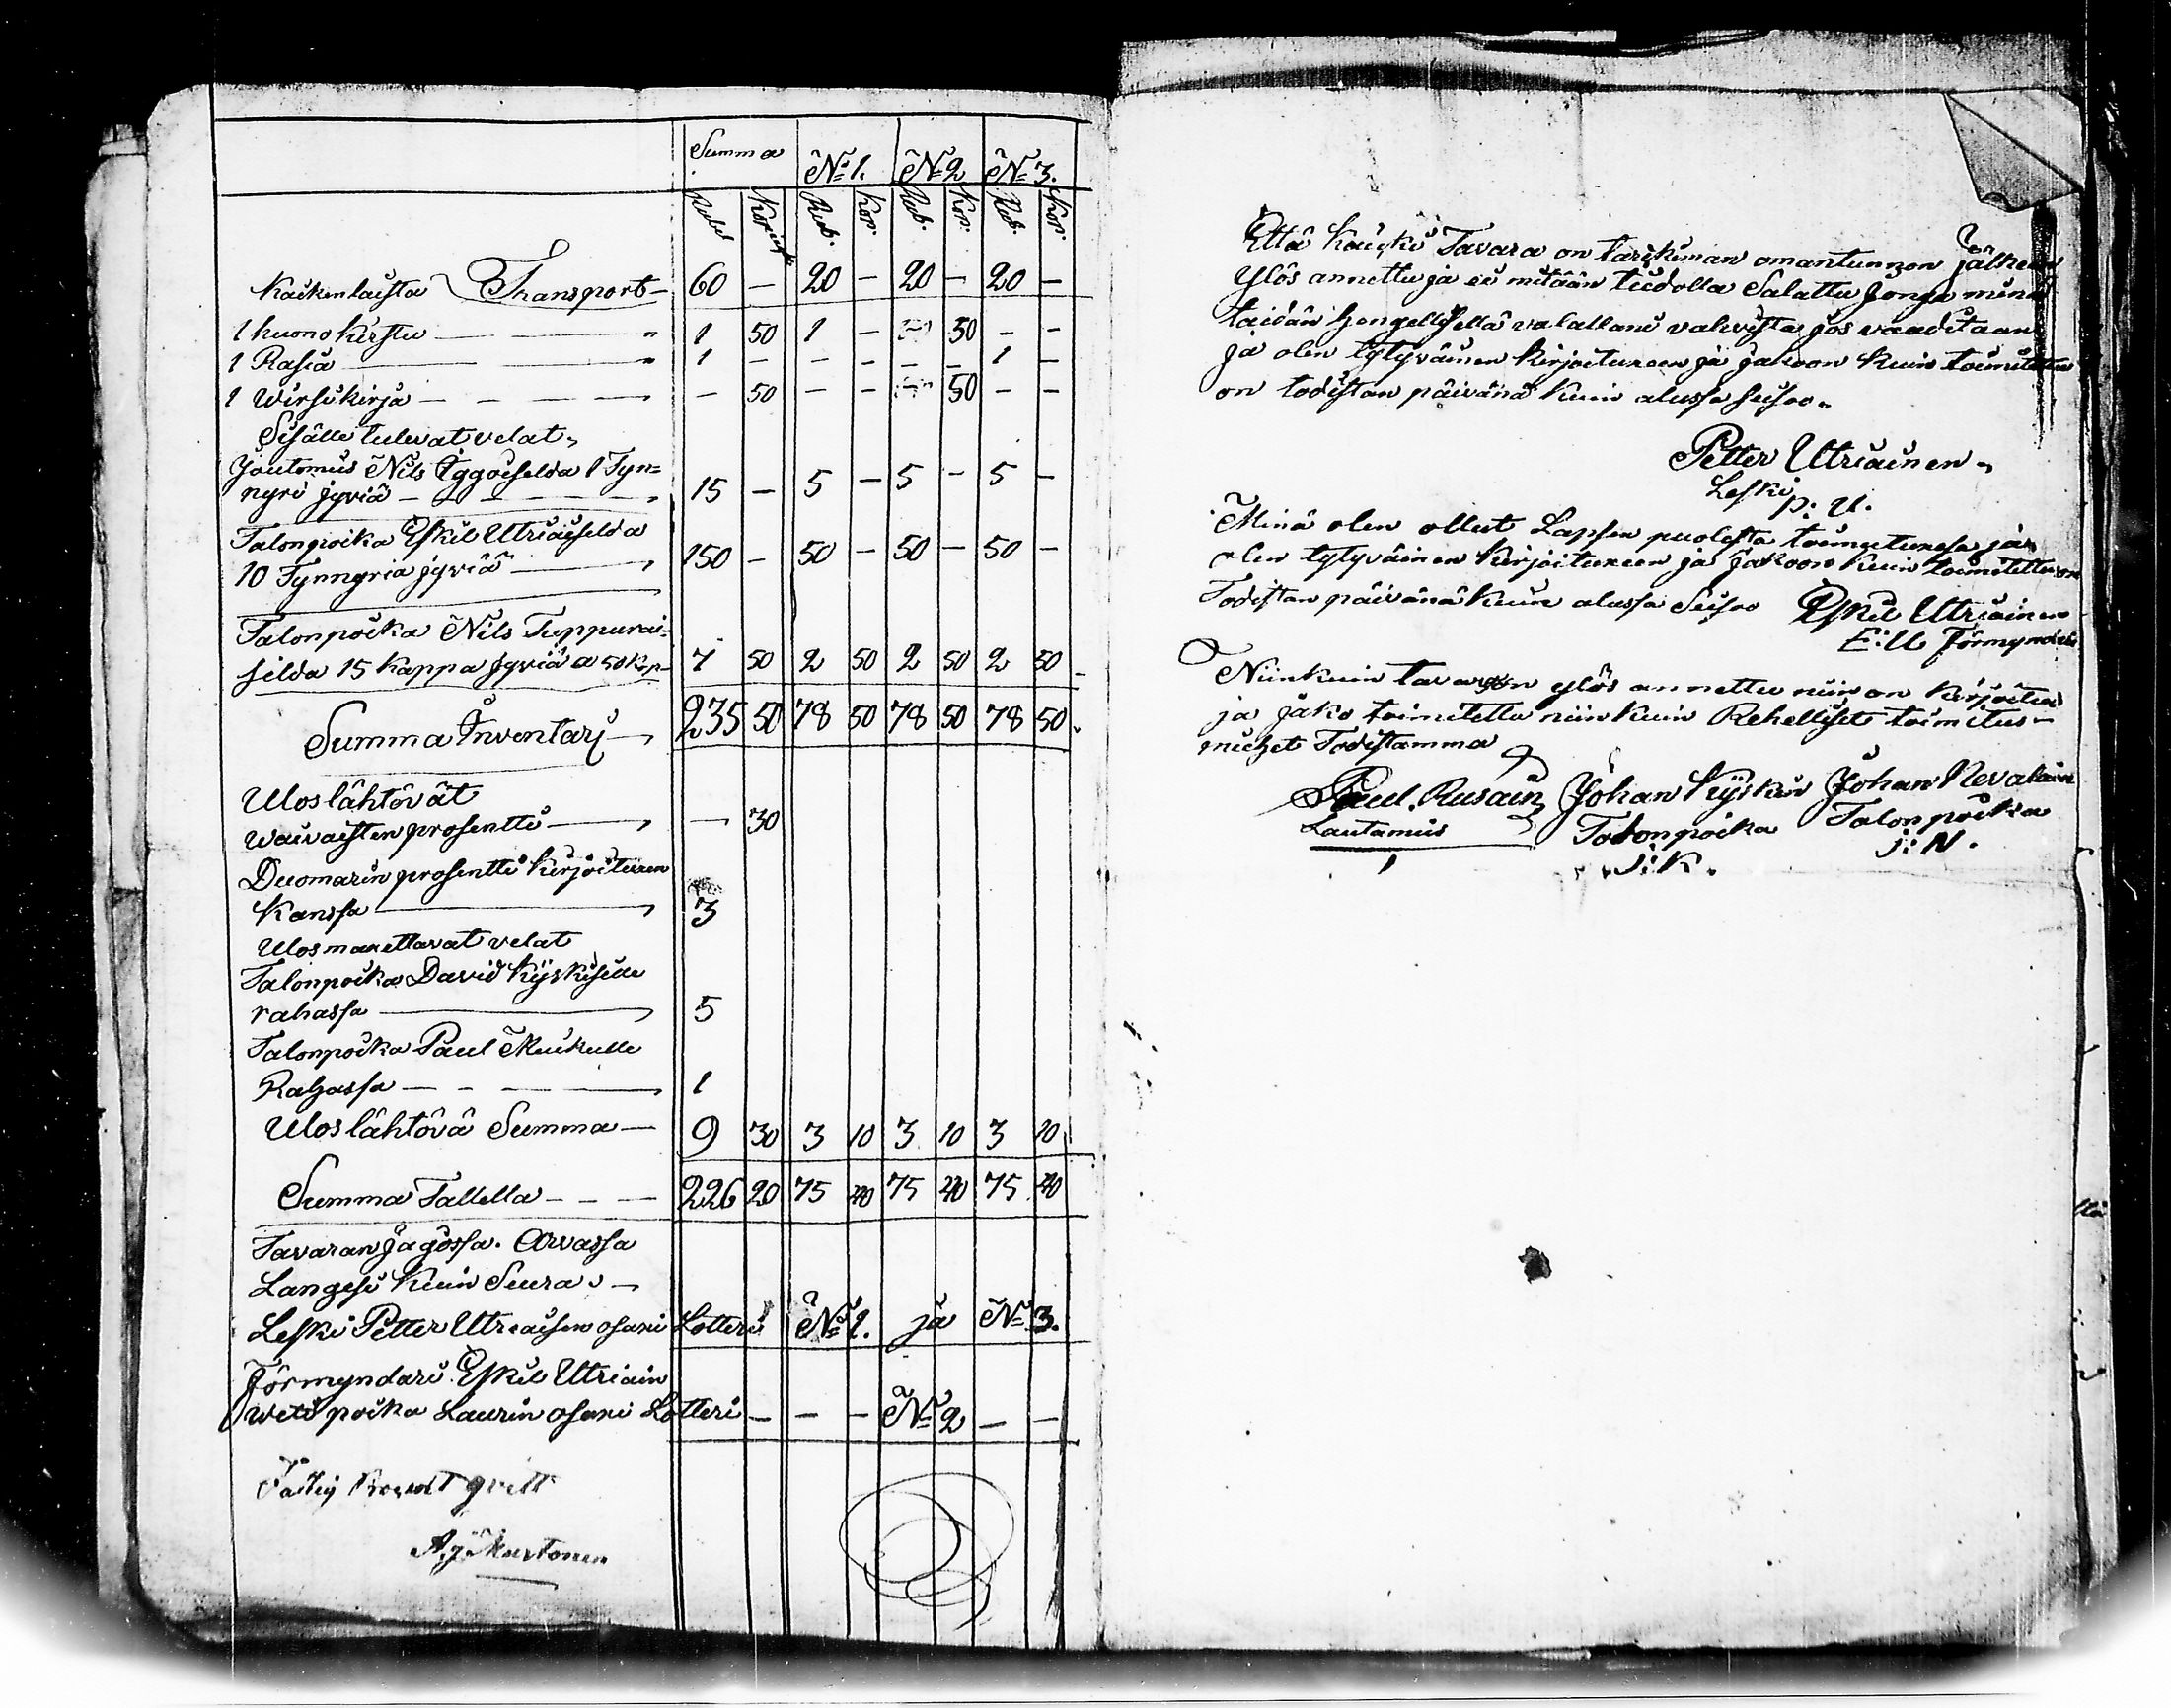 Summa № 1. № 2 № 3.
Rubel Kopeik Rub. Kop. Rub. Kop. Rub. Kop.
Kaikenlaista Transport 60 — 20 — 20 — 20 —
1 huono kirstu — " 1 50 1 — 50 — —
1 Rasia — " 1 — — — — — 1 —
1 Wirsikirja — — 50 — — 50 — —
Sisälle tulevat velat,
Jautomus Nils Iggoiselda 1 Tyn=
nyri jyviä — 15 — 5 — 5 — 5 —
Talonpoika Eskil Utriaiselda
10 Tynnyriä jyviä — 150 — 50 — 50 — 50 —
Talonpoika Nils Tuppurai=
silda 15 Kappa jyviä a 50 Kop 7 50 2 50 2 50 2 50
Summa Inventarj 235 50 78 50 78 50 78 50.
Ulos lähtövät
waivaisten prosentti — — 30
Duomarin prosentti kirjoituxen
Kanssa — 3
Ulos maxettavat velat
Talonpoika David Kyskiselle
rahassa — 5
Talonpoika Paul Muikulle
Rahassa — 1
Ulos lähtövä Summa — 9 30 3 10 3 10 3 10
Summa Tallella — 226 20 75 40 75 40 75 40
Tavaran Jagossa. Arvassa
Langesi Kuin Seuraa —
Leski Petter Utriaisen osaxi Lotteri № 1. ja № 3.
Förmyndari Eskil Utriain
weti poika Laurin osaxi Lotteri — — — № 2 — —
A. J. Murtonen
Että kaikki Tavara on tarkiman omantunnon jälkeen
Ylös annettu ja ei mitään tiedolla Salattu Jonga minä
taidan hengellisellä valallani vahvista jos vaaditaan
ja olen tytyväinen kirjoituxeen ja jakoon kuin toimitettu
on todistan päivänä kuin alussa seisoo.
Petter Utriainen
Leski
P: U.
Minä olen ollut Lapsen puolesta toimituxesa ja
olen tytyväinen kirjoituxeen ja jakoon kuin toimitettu on
Todistan päivänä kuin alussa Seisoo Eskil Utriainen
E: U Förmyndari
Niinkuin tavara on ylös annettu niin on kirjoitettu
ja jako toimitettu niinkuin Rehelliset toimitus=
miehet Todistamma
Paul. Rusain Johan Kyskin Johan Nevalain
Lautamies Talonpoika Talonpoika
J: K. J: N.